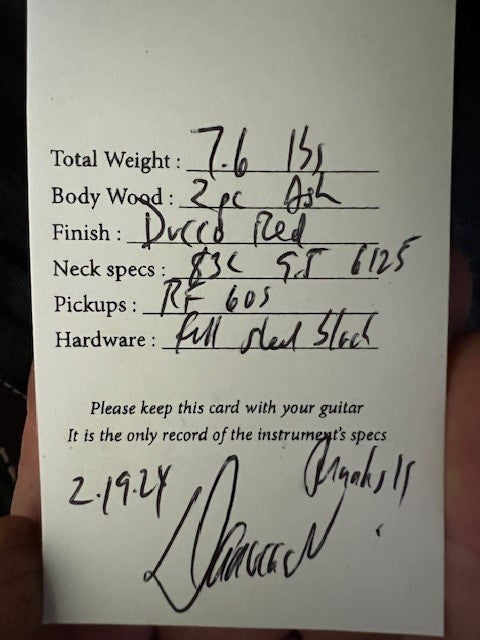 Total Weight : 7.6 lbs
Body Wood : 2pc Ash
Finish : Ducco Red
Neck specs : 83C 9.5 6125
Pickups : RF 60s
Hardware : full steel block
Please keep this card with your guitar
It is the only record of the instrument's specs
2.19.24